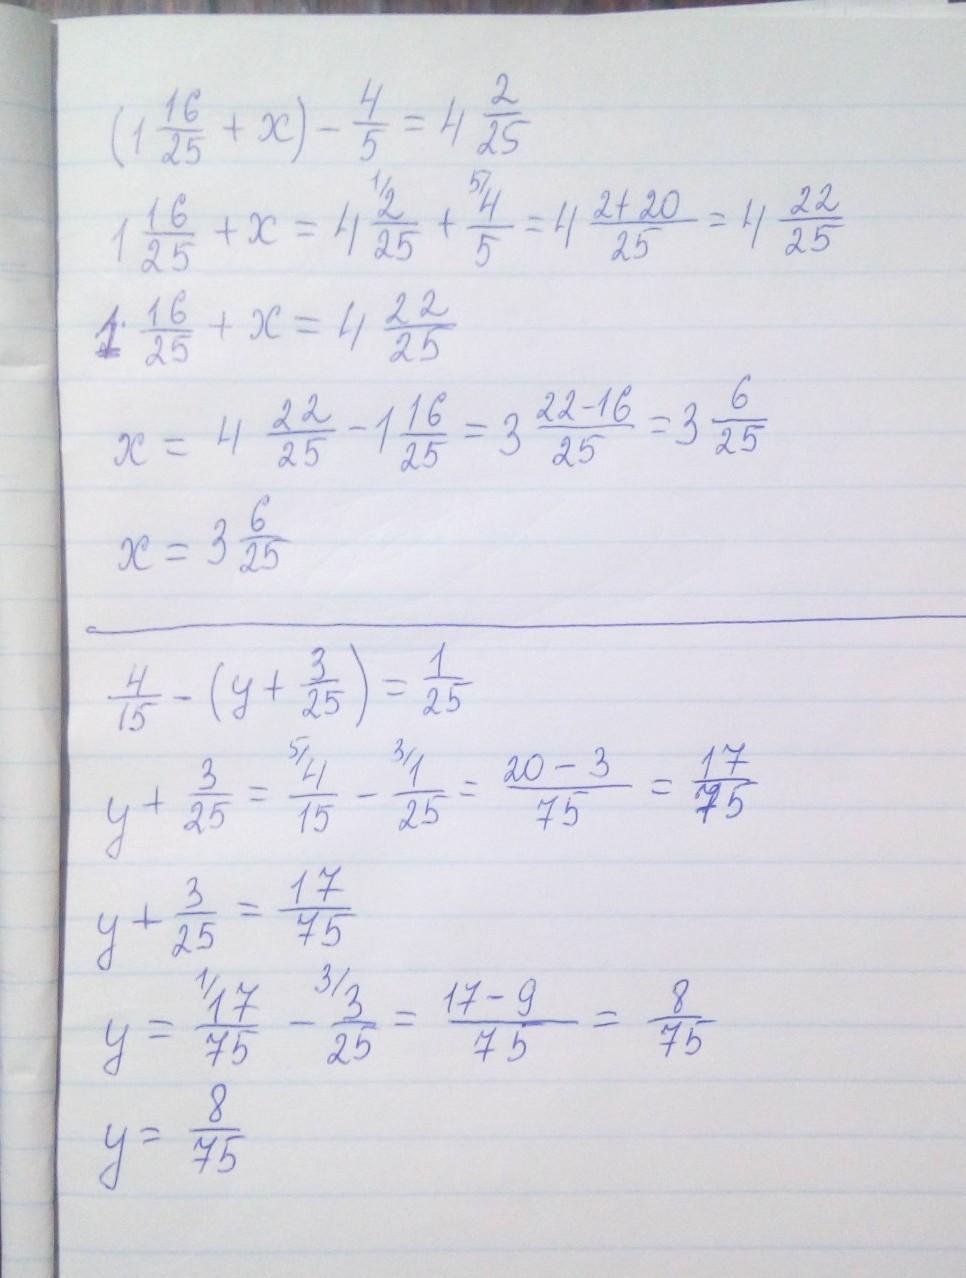 (1 16/25 + x) - 4/5 = 4 2/25
1 16/25 + x = 4 1/ 2/25 + 5/ 4/5 = 4 2+20/25 = 4 22/25
1 16/25 + x = 4 22/25
x = 4 22/25 - 1 16/25 = 3 22-16/25 = 3 6/25
x = 3 6/25
4/15 - (y + 3/25) = 1/25
y + 3/25 = 5/ 4/15 - 3/ 1/25 = 20-3/75 = 17/75
y + 3/25 = 17/75
y = 1/ 17/75 - 3/ 3/25 = 17-9/75 = 8/75
y = 8/75